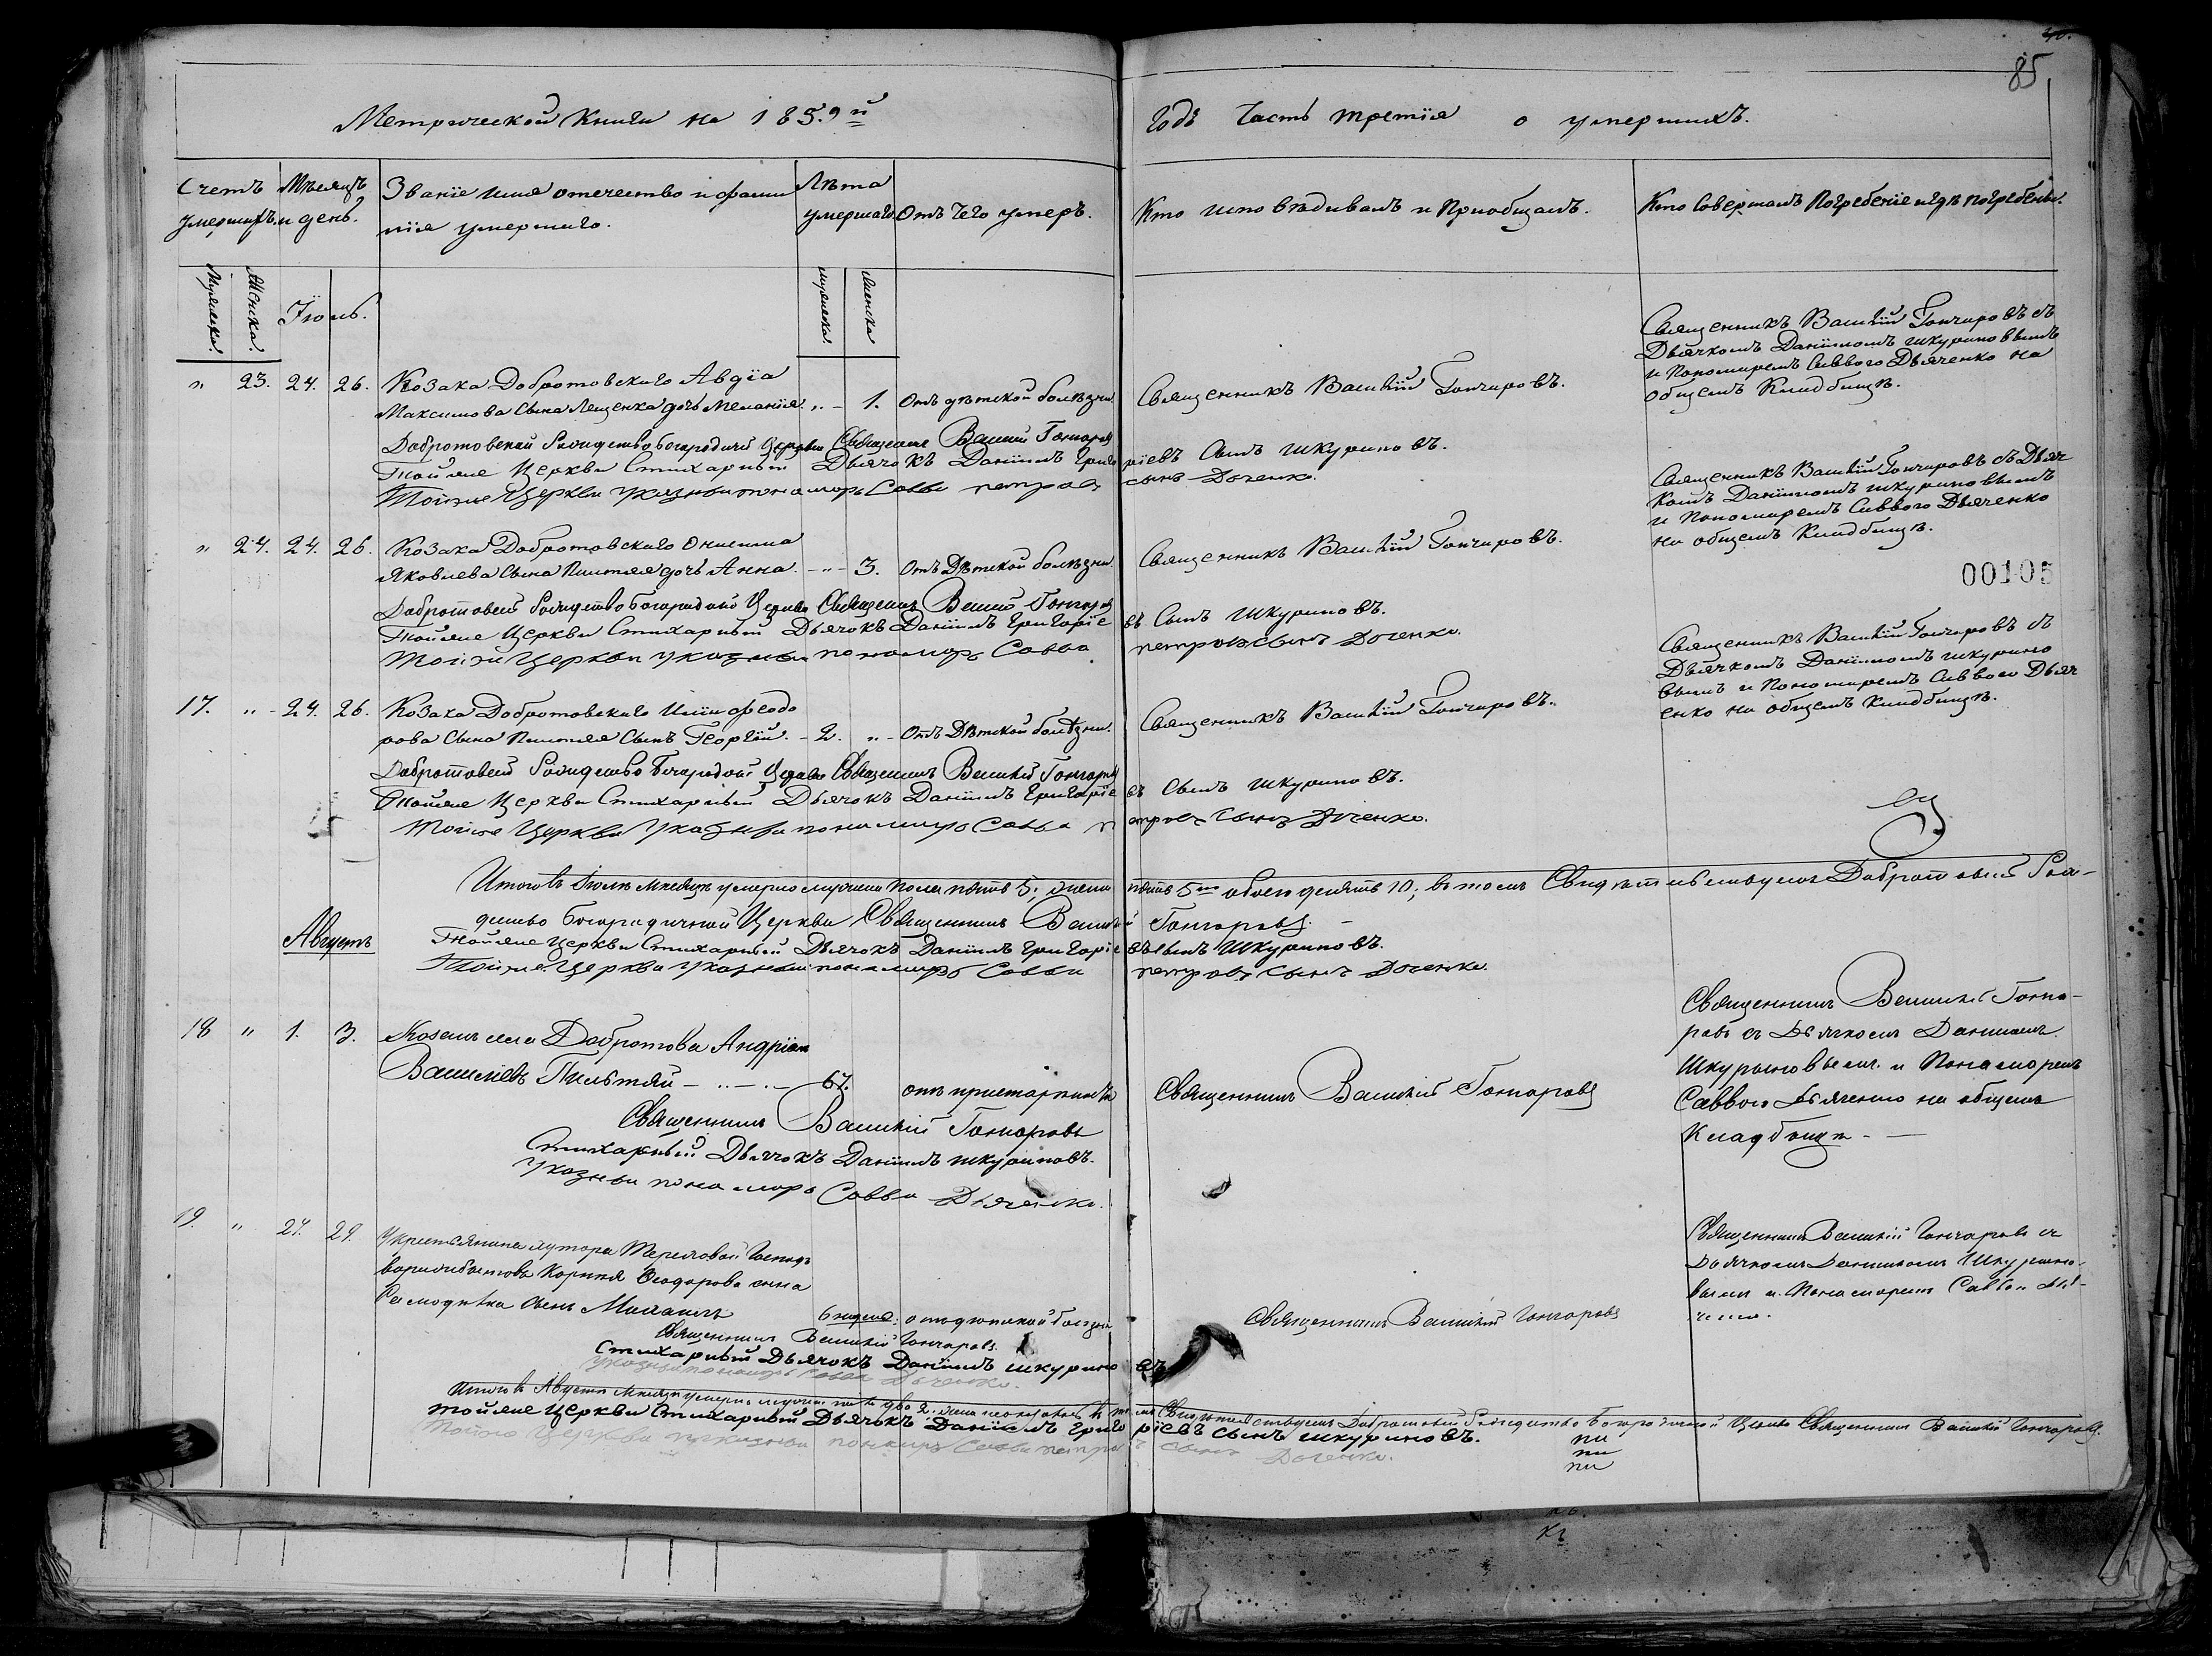 85
Метрической Книги на 1859й Годъ Часть третія о умершихъ.
Счетъ умершихъ
Мѣсяцъ и день.
Званіе имя отечество и фами
лія умершаго.
Лѣта
умершаго
Отъ Чего умеръ.
Кто исповѣдывалъ и Пріобщалъ.
Кто Совершалъ Погребеніе и гдѣ погребены.
Мужеска.
Женска.
Іюль.
мужеска.
женска
" 23. 24. 26. Козака Добротовскаго Авдіа
Максимова Сына Лещенка дочь Меланія. " - 1. Отъ дѣтской болѣзни.
Священникъ Василій Гончаровъ.
Священникъ Василій Гончаровъ съ
Дьячкомъ Даніиломъ Шкуриновымъ
и Пономаремъ Саввою Дьяченко на
общемъ Кладбищѣ.
Добротовской Рождество богородичной Церкви Священникъ Василій Гончаровъ
Тойже Церкви Стихарный Дьячокъ Даніилъ Григоріевъ Сынъ Шкуриновъ.
Тойже Церкви указный пономарь Савва петровъ сынъ Дяченко.
" 24. 24. 26. Козака Добротовскаго Онисима
Яковлева Сына Пилтяя дочь Анна. - " - 3. Отъ Дѣтской болѣзни.
Священникъ Василій Гончаровъ.
Священникъ Василій Гончаровъ съ Дьяч
комъ Даніиломъ Шкуриновымъ
и Пономаремъ Саввою Дьяченко
на общемъ Кладбищѣ.
00105
Рождество богородичной Церкви Священникъ Василій Гончаровъ
Тойже Церкви Стихарный Дьячокъ Даніилъ Григоріевъ Сынъ Шкуриновъ.
Тойже Церкви указный пономарь Савва петровъ сынъ Дяченко.
17. " - 24. 26. Козака Добротовскаго Иліи Феодо
рова Сына Пилтяя Сынъ Георгій. - 2. " - Отъ Дѣтской болѣзни.
Священникъ Василій Гончаровъ.
Священникъ Василій Гончаровъ съ
Дьячкомъ Даніиломъ Шкурино
вымъ и Пономаремъ Саввою Дьяч
енко на общемъ Кладбищѣ.
Рождество Богородичной Церкви Священникъ Василій Гончаровъ
Тойже Церкви Стихарный Дьячокъ Даніилъ Григоріевъ Сынъ Шкуриновъ.
Тойже Церкви Указный пономарь Савва петровъ Сынъ Дяченко.
Итого въ Іюлѣ Мѣсяцѣ умерло мужеска пола пять 5; женска пять 5 обоего десять 10; въ томъ Свидѣтельствуемъ Рож-
дество богородичной Церкви Священникъ Василій Гончаровъ. -
Августъ
Тойже Церкви Стихарный Дьячокъ Даніилъ Григоріевъ сынъ Шкуриновъ.
Тойже Церкви Указный пономарь Савва петровъ Сынъ Дяченко.
18 " 1. 3. Козакъ села Добротова Андріан
Василіевъ Пилтяй - 67. отъ престарѣлости
Священникъ Василій Гончаровъ
Священникъ Василій Гонча-
ровъ съ Дьячкомъ Даніиломъ
Шкуриновымъ и Пономаремъ
Саввою Дьяченко на общемъ
Кладбищѣ. -
Священникъ Василій Гончаровъ
Стихарный Дьячокъ Даніилъ Шкуриновъ.
Указный пономарь Савва Дьяченко.
19. " 27. 29. Крестьянина хутора
Корнія Феодорова сына
сынъ Михаилъ 6 недель. отъ дѣтской болѣзни
Священникъ Василій Гончаровъ
Священникъ Василій Гончаровъ съ
Дьячкомъ Даніиломъ Шкурино-
вымъ и Пономаремъ Саввою Дья-
ченко.
Священникъ Василій Гончаровъ.
Стихарный Дьячокъ Даніилъ Шкуриновъ
Указный пономарь Савва Дяченко.
Итого въ Августѣ Мѣсяцѣ умерло мужеска пола два 2. Свидѣтельствуемъ Рождество Богородичной Церкви Священникъ Василій Гончаровъ.
Тойже Церкви Стихарный Дьячокъ Даніилъ Григоріевъ Сынъ Шкуриновъ.
Тойже Церкви указный пономарь Савва петровъ Сынъ Дяченко.